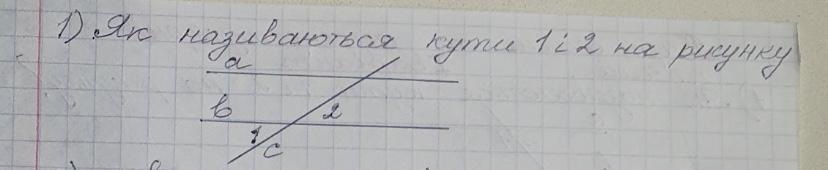 1) Як називаються кути 1 і 2 на рисунку
a
b 2
1 c